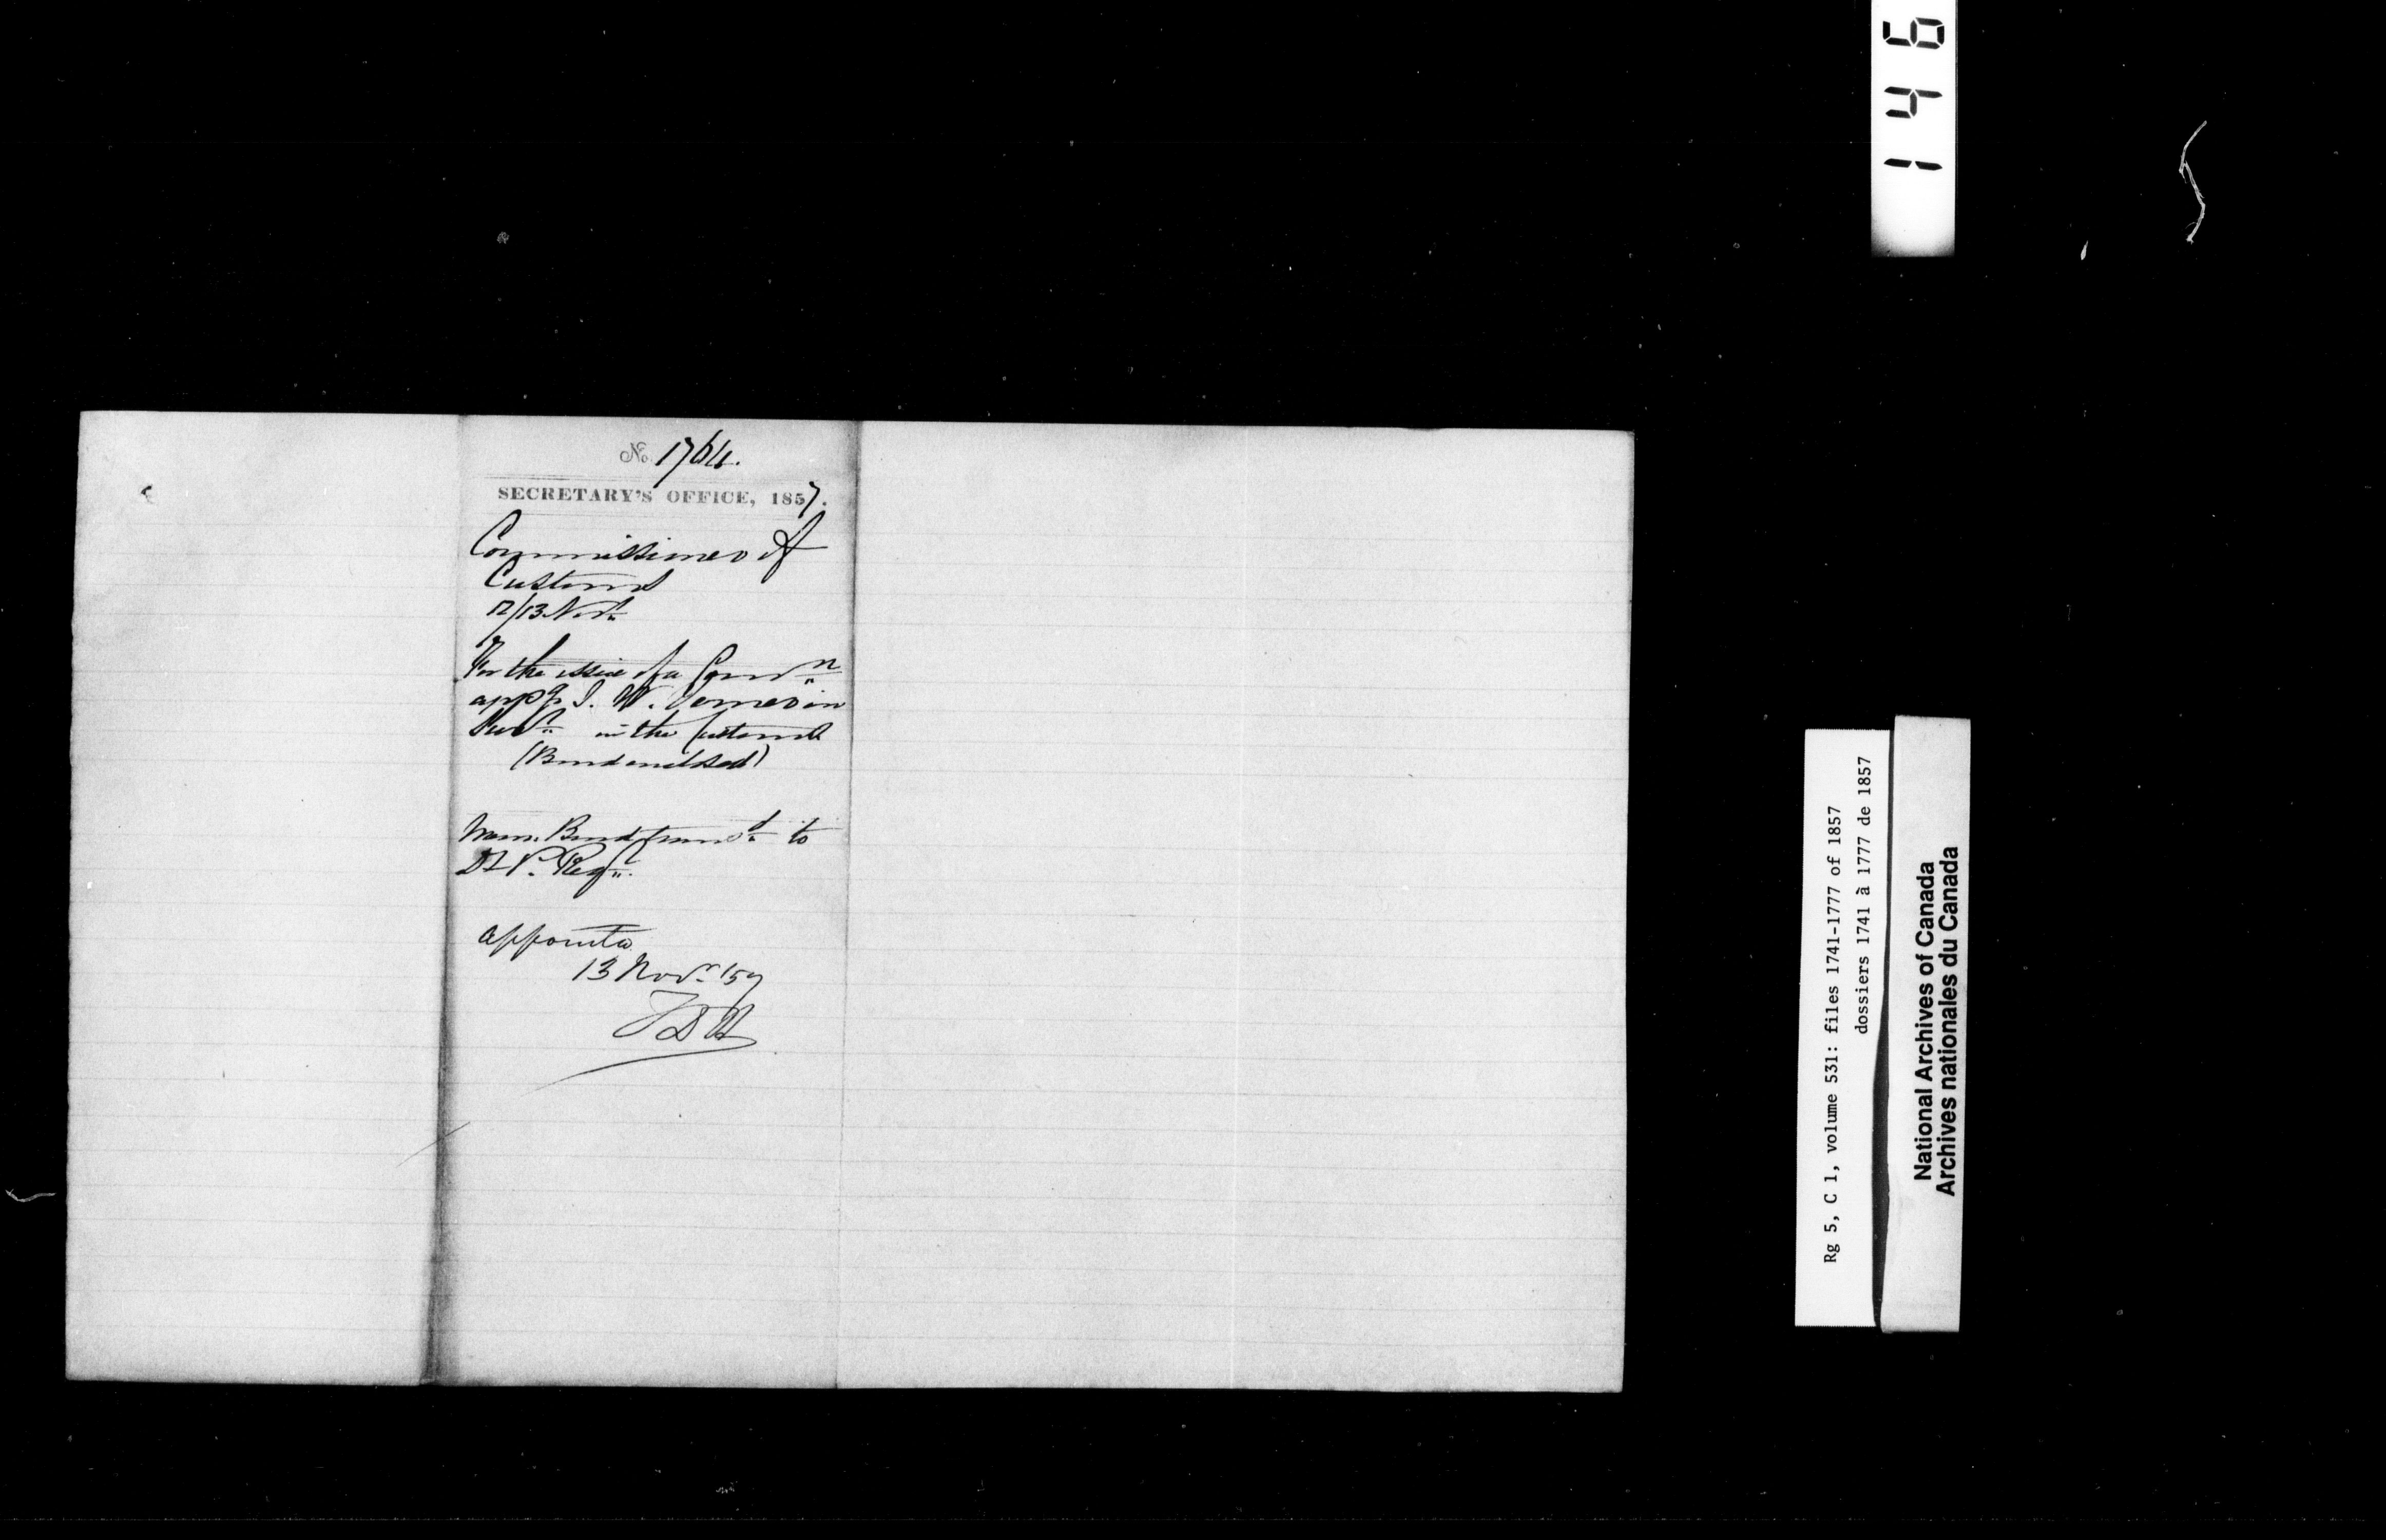 No. 1764.
SECRETARY'S OFFICE, 1857.
Commissioner of
Customs
12/13 Novr.
For the issue of a Comn.
appg J. W.
Survr. in the Customs
(Bond enclosed)
Mem. Bond transd. to
D. P. Regr.
appointed
13 Novr. '57
1 4 6
Rg 5, C 1, volume 531: files 1741-1777 of 1857
dossiers 1741 à 1777 de 1857
National Archives of Canada
Archives nationales du Canada